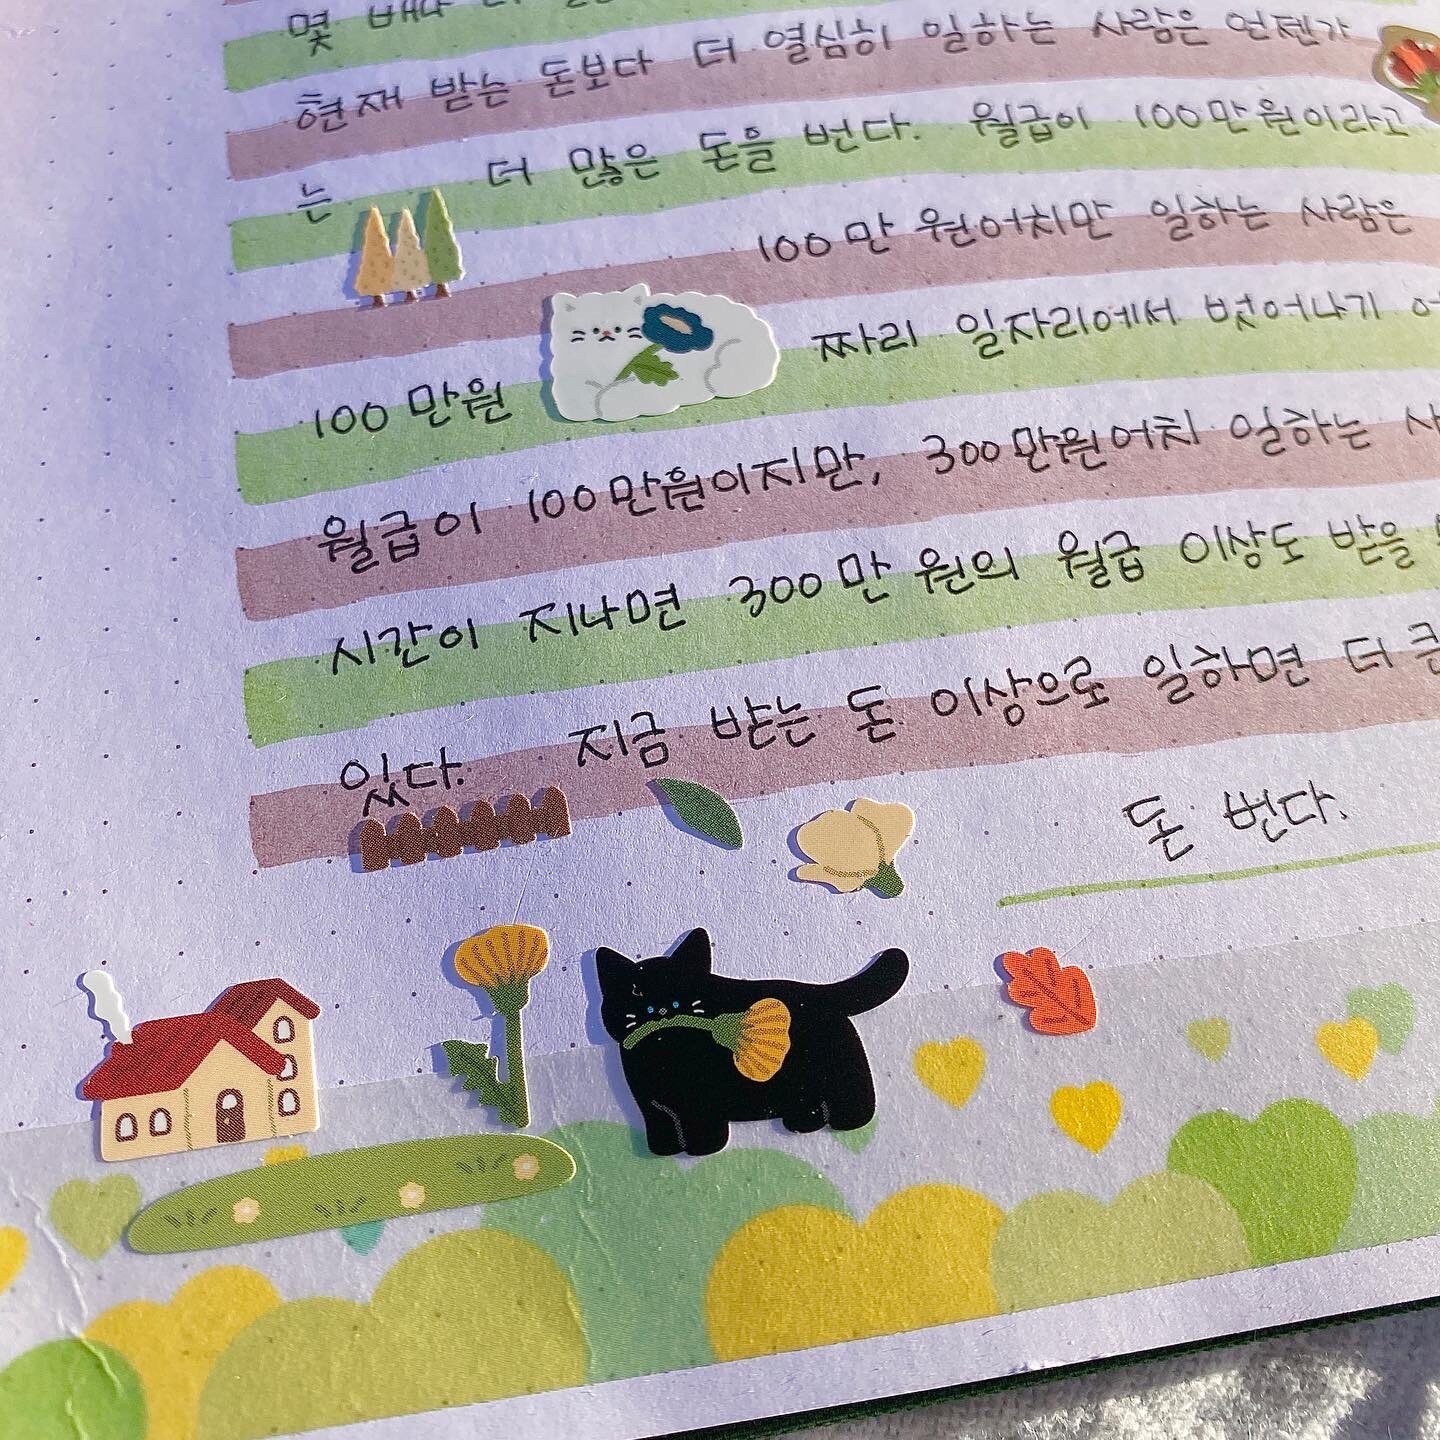 몇 배나 더
현재 받는 돈보다 더 열심히 일하는 사람은 언젠가
는 더 많은 돈을 번다. 월급이 100만원이라고
100만 원어치만 일하는 사람은
100만원 짜리 일자리에서 벗어나기 어
월급이 100만원이지만, 300만원어치 일하는 사
시간이 지나면 300만 원의 월급 이상도 받을
있다. 지금 받는 돈 이상으로 일하면 더 큰
돈 번다.